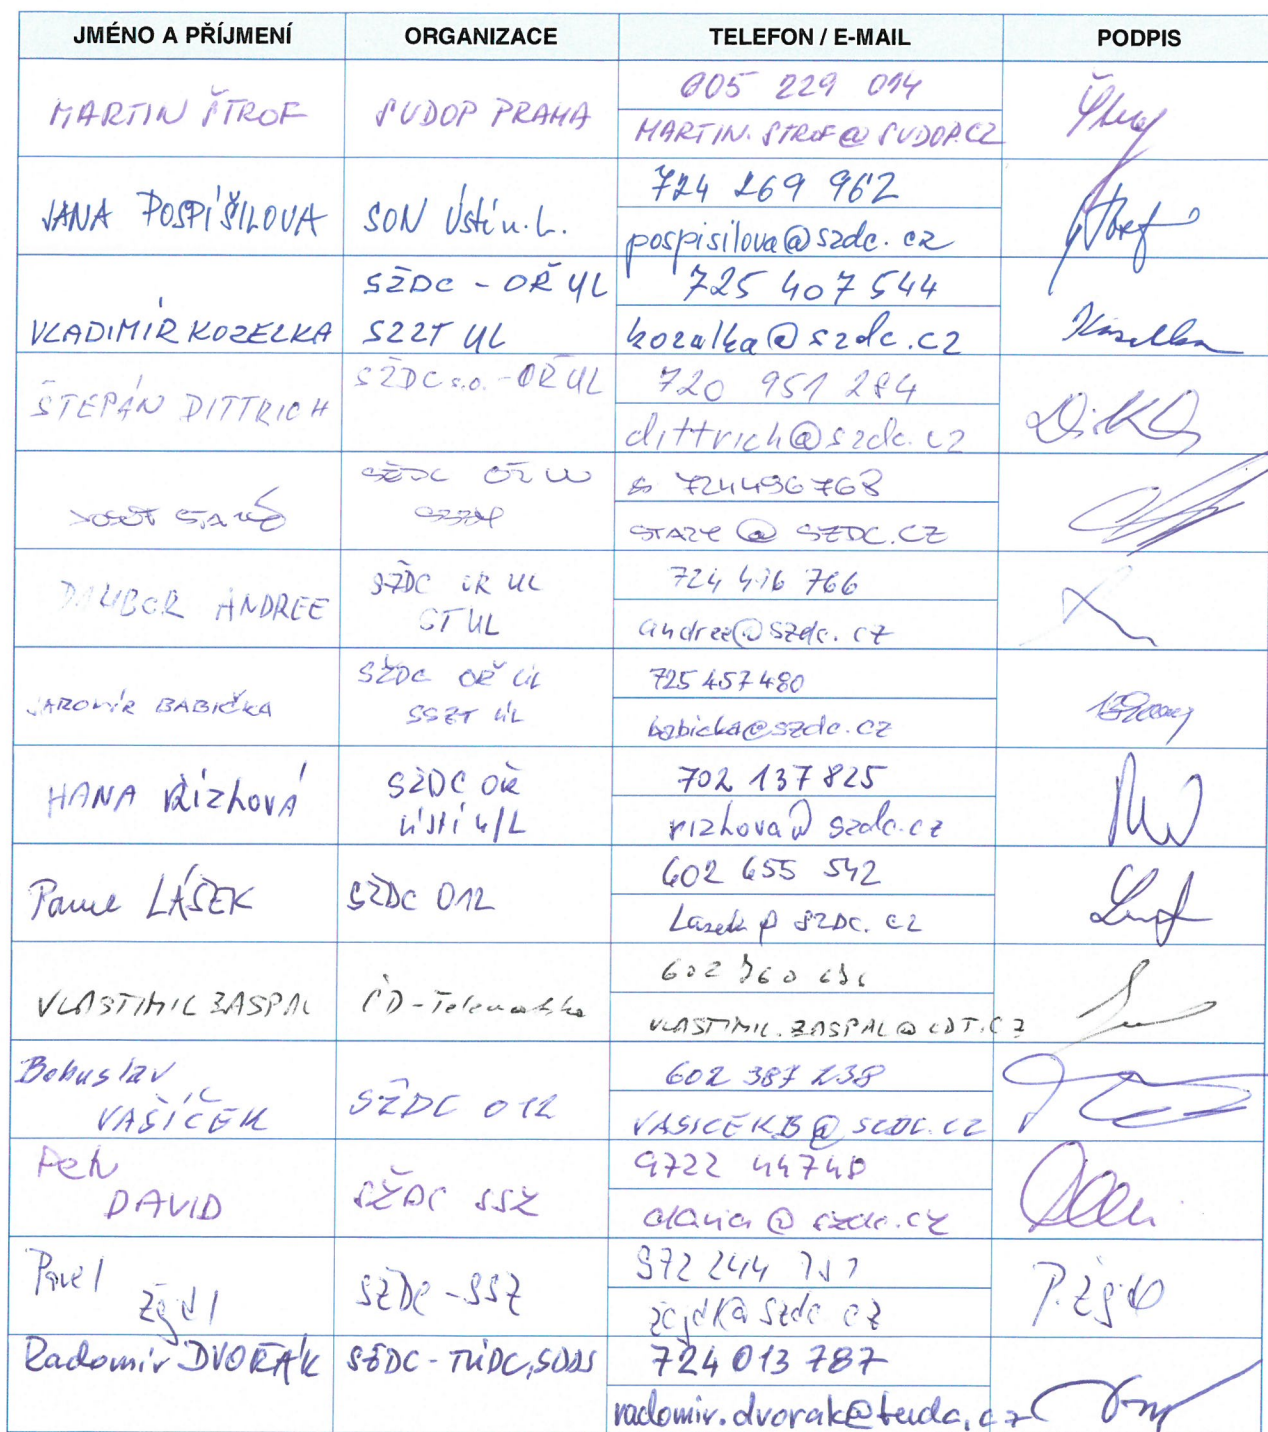 JMÉNO A PŘÍJMENÍ ORGANIZACE TELEFON / E-MAIL PODPIS
MARTIN ŠTROF SUDOP PRAHA 605 229 014
MARTIN.STROF@SUDOP.CZ
JANA POSPÍŠILOVA SON Ústí n.L. 724 269 962
pospisilova@szdc.cz
VLADIMÍR KOZELKA SŽDC - OŘ UL 725 407 544
SZZT UL kozelka@szdc.cz
ŠTEPÁN DITTRICH SŽDC s.o. - OŘ UL 720 951 284
dittrich@szdc.cz
SŽDC OŘ 724496768
STARY @ SZDC.CZ
ANDREE SŽDC OŘ UL 724 416 766
ST UL andree@szdc.cz
JAROMÍR BABIČKA SŽDC OŘ UL 725 457 480
SSZT UL babicka@szdc.cz
HANA Řízhová SŽDC OŘ 702 137 825
Ústí n/L rizhova@szdc.cz
LÁŠEK SŽDC O12 602 655 542
Lasek @ SZDC.cz
VLASTIMIL ZASPAL ČD-Telematika 602
VLASTIMIL.ZASPAL@CDT.CZ
Bohuslav
VAŠÍČEK SŽDC O12 602 387 238
VASICEKB@SZDC.CZ
Petr
DAVID SŽDC SSZ 9722 44740
david@szdc.cz
Pavel SŽDC - SSZ 972 244
Radomír DVOŘÁK SŽDC - TÚDC, 724 013 787
radomir.dvorak@tudc.cz